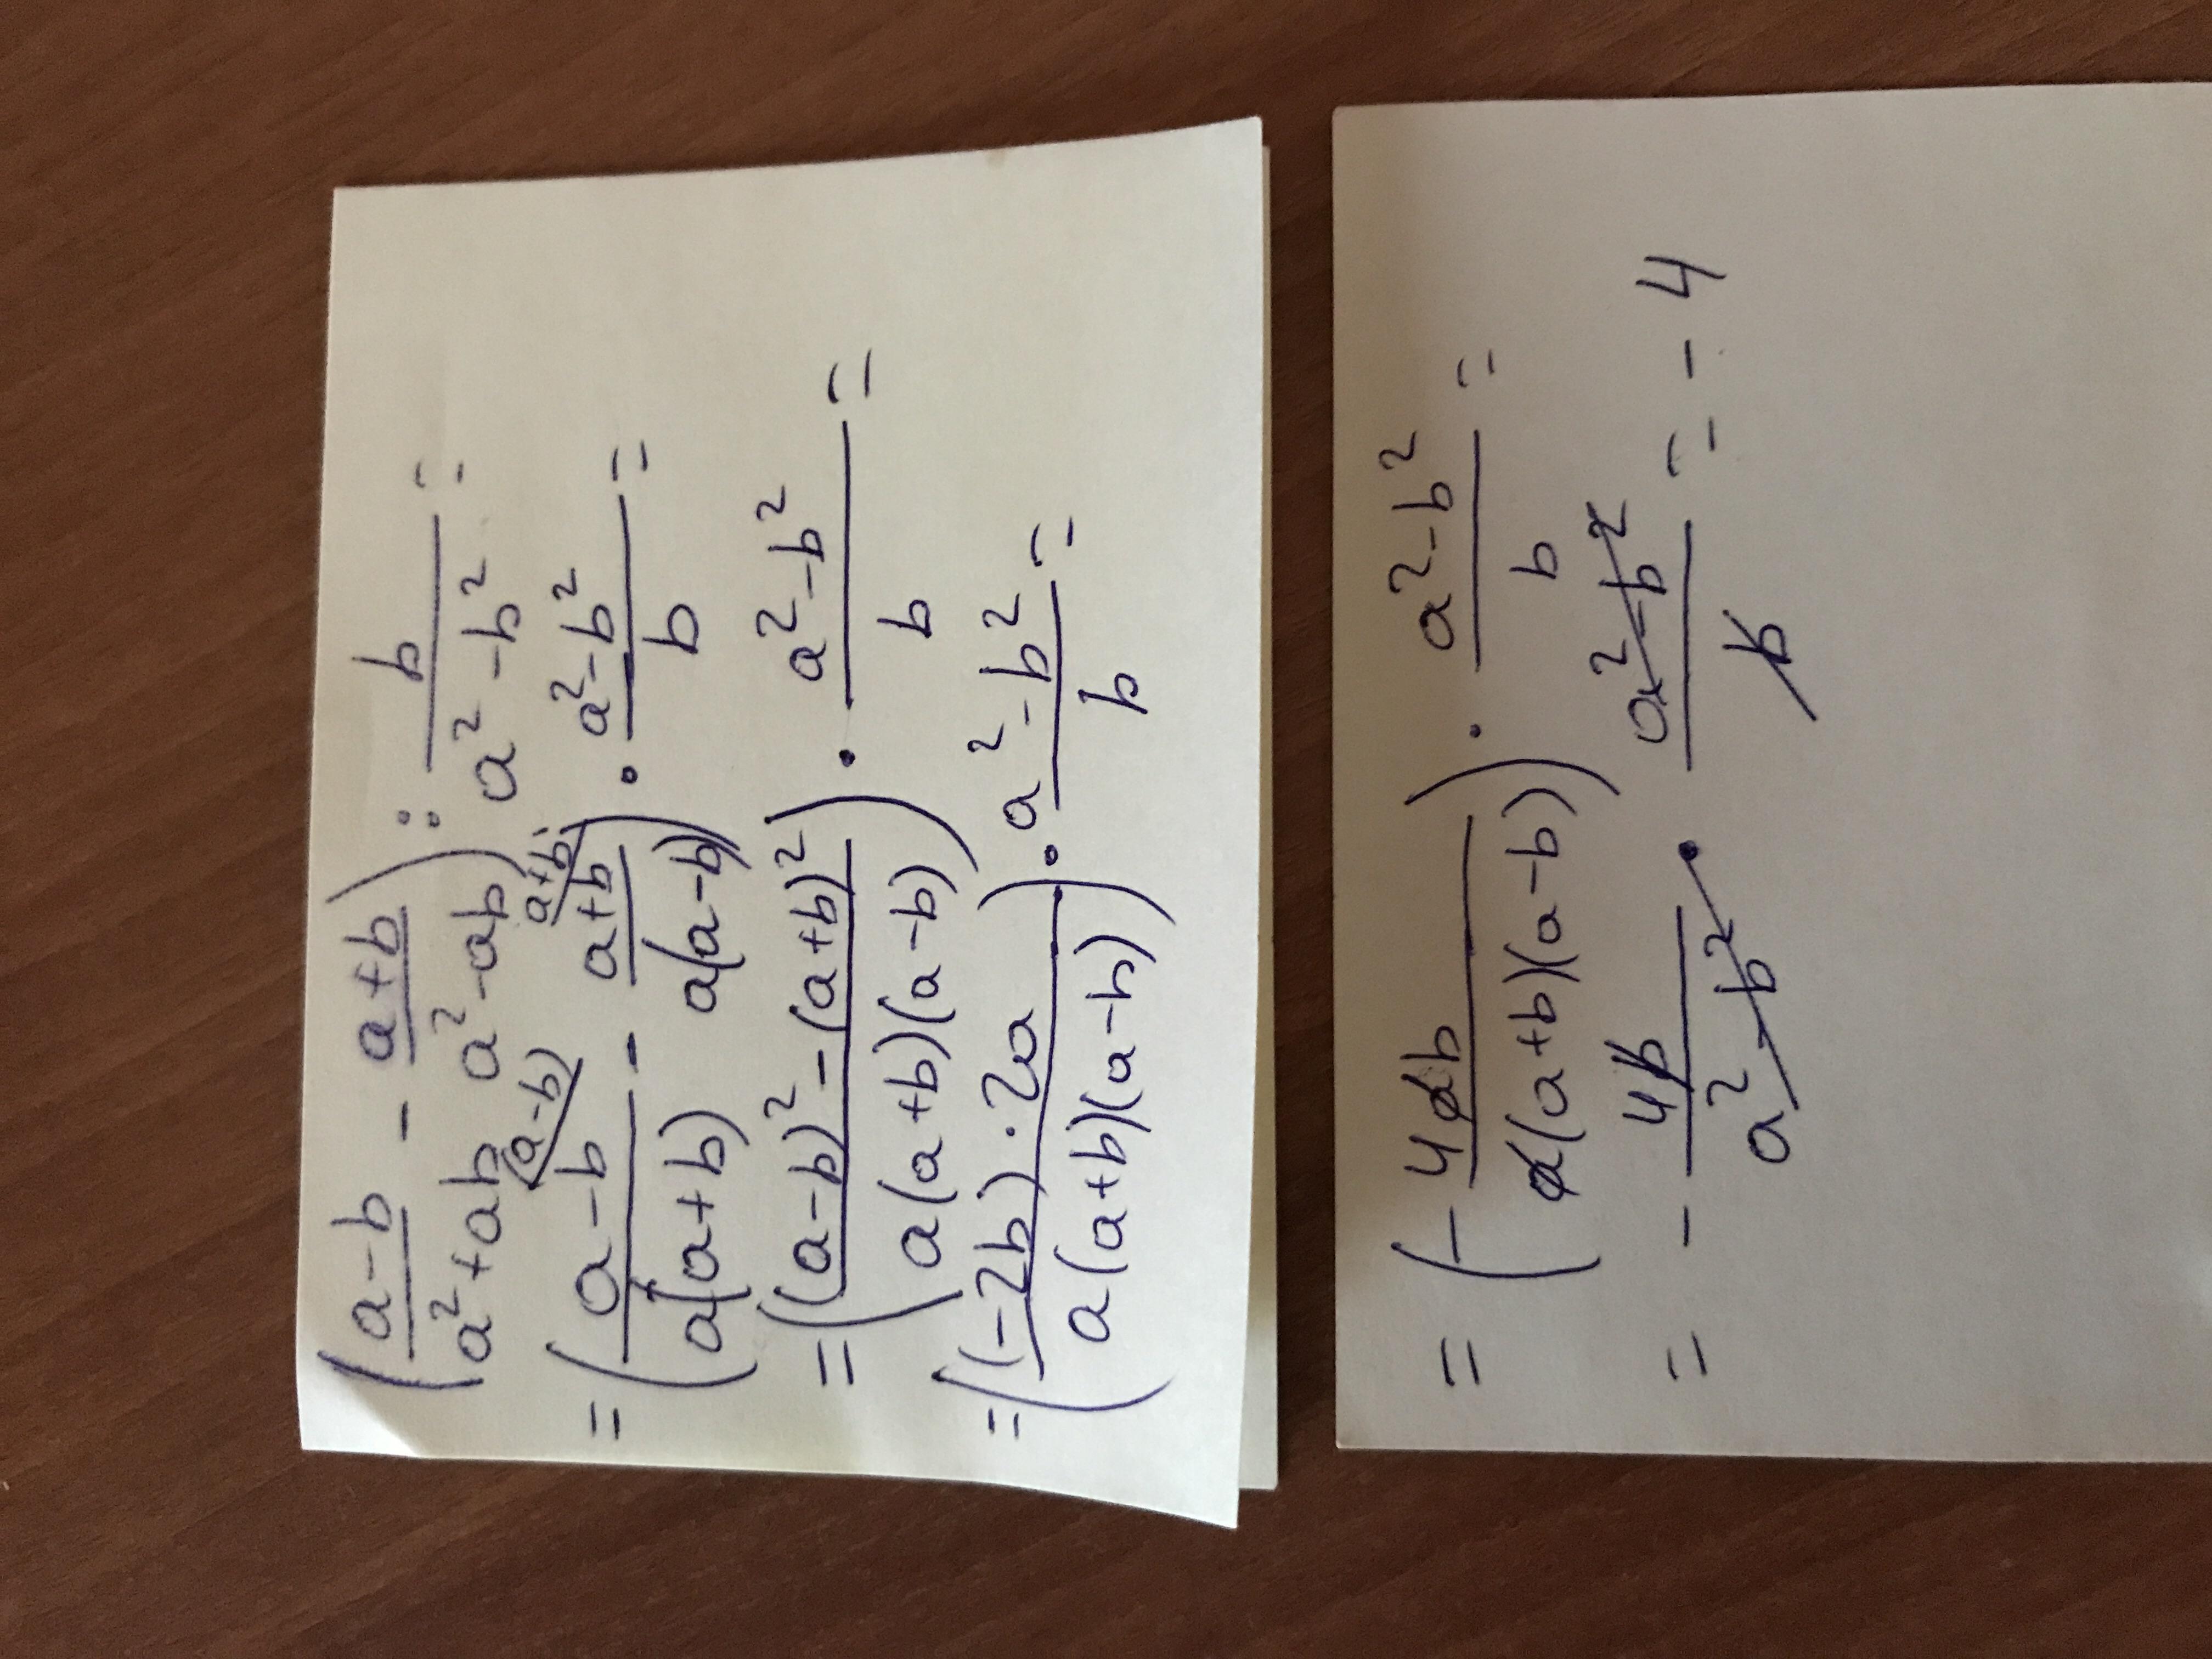 (a-b/a²+ab - a+b/a²-ab) : b/a²-b² =
= (a-b/a(a+b) (a-b) - a+b/a(a-b) a+b) · a²-b²/b =
= ((a-b)²-(a+b)²/a(a+b)(a-b)) · a²-b²/b =
= ((-2b)·2a/a(a+b)(a-b)) · a²-b²/b =
= (- 4ab/a(a+b)(a-b)) · a²-b²/b =
= - 4b/a²-b² · a²-b²/b = - 4